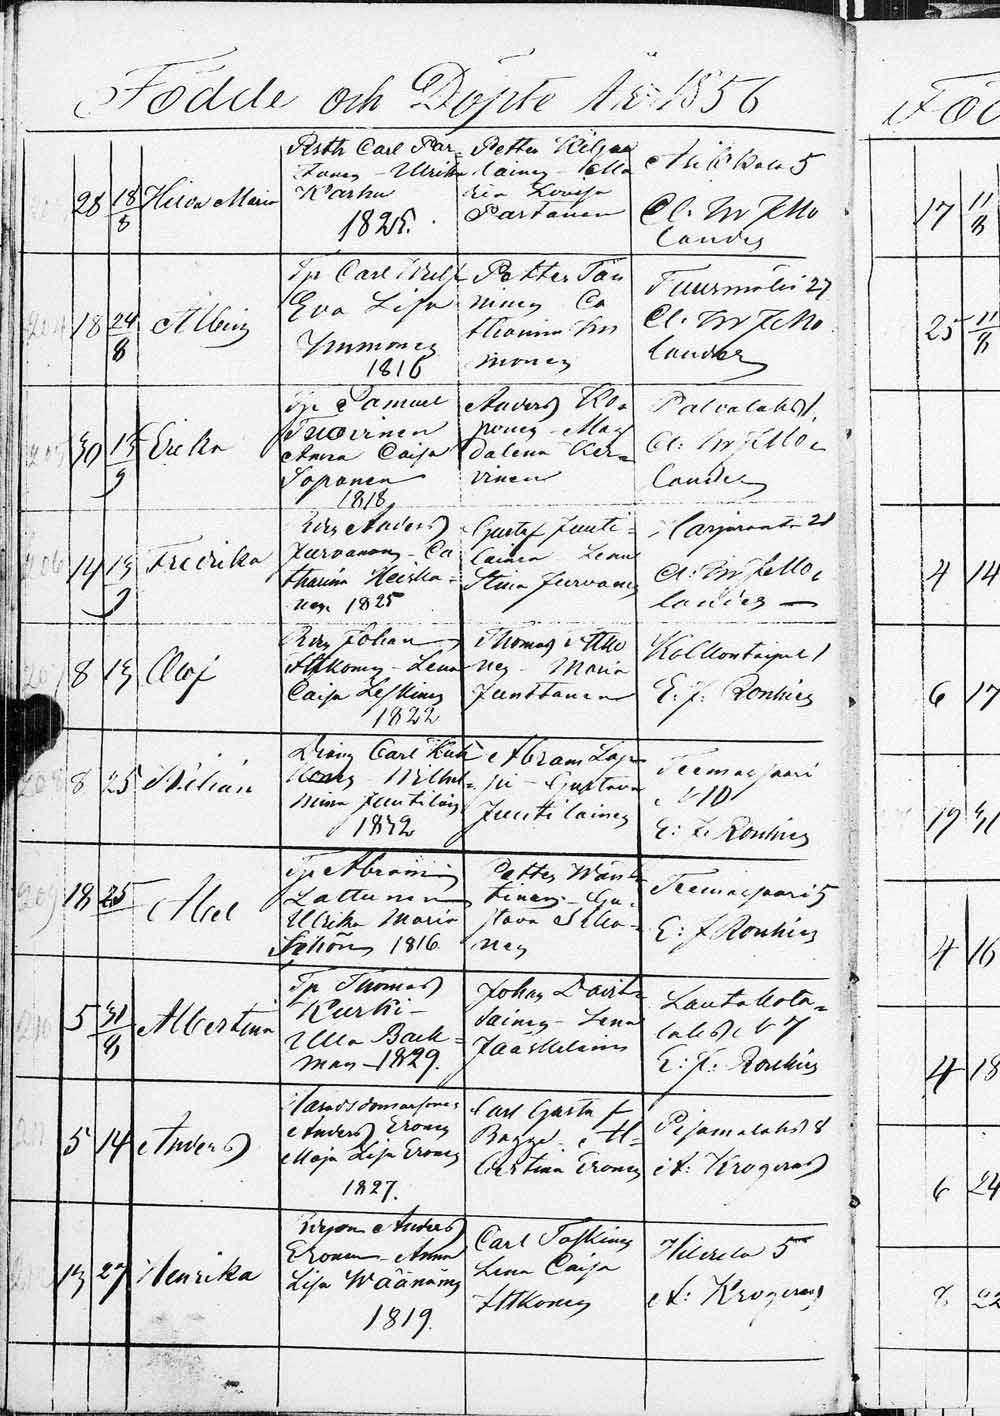 Födde och Döpte År 1856
28 18/8 Hilda Maria
Carl Par-
tanen - Ulrika
Karhu
1825.
Petter Kiljua
lainen - Ma
ria Lovisa
Partanen
5
Cl: W. F. Mo
lander
204 18 24/8 Albin
Tp Carl Wulff
Eva Lisa
Immonen
1816
Petter Tan
ninen Ca
tharina Im
monen
Tuusmäki 27
Cl: W. F. Mo
lander
205 30 13/9 Erika
Tp Samuel
Anna Caisa
Soponen
1818
Anders Ko
ponen - Mag
dalena Ker-
vinen
Palvalaks 1
Cl: W. F. Mo
lander
206 14 13/9 Fredrika
Anders
Jurvanen - Ca
tharina Heiska-
nen 1825
Gustaf Juuti-
lainen Lena
Stina Jurvanen
Harjuranta 21
Cl: W. F. Mo
lander
207 8 13 Olof
Johan
Ihkonen - Lena
Caisa Leskinen
1822
Thomas Ihko
nen - Maria
Junttanen
1
E: F. Ronkin
208 8 25 Kilian
Carl Kuk
konen - Wilhel-
mina Juutilain
1832
Abram Lap
pi - Gustava
Juutilainen
Teemassaari
N 10
E: F. Ronkin
209 18 25 Abel
Tp Abram
Lattunen
Ulrika Maria
1816
Petter Wänt
tinen - Gu-
stava Silla-
nen
Teemassaari 5
E: F Ronkin
210 5 31/8 Albertina
Tp Thomas
Kurki -
Ulla Back-
man - 1829.
Johan Davit-
sainen - Lena
Jääskelainen
Lautakota-
laks N 7
E: F: Ronkin
211 5 14 Anders
Anders Eronen
Maja Lisa Eronen
1827.
Carl Gustaf
Bagge - Al-
bertina Eronen
Pijamalaks 8
A: Krogerus
13 27 Henrika
Anders
Eronen - Anna
Lisa Wäänänen
1819.
Carl Taskinen
Lena Caisa
Ihkonen
Hiltula 5
A: Krogerus
Föd
17 11/8
25 11/8
4 14
6 17
19 31
4 16
4 18
6 24
8 22